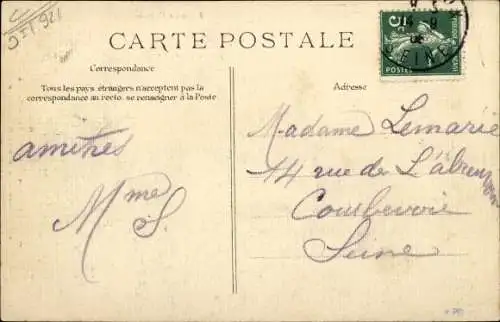 CARTE POSTALE
Correspondance
Tous les pays étrangers n'acceptent pas la
correspondance au recto, se renseigner à la Poste
Adresse
amitiés
Mme S.
Madame Lemarié
14 rue de L'abreuvoir
Courbevoie
Seine
POSTES
SEINE